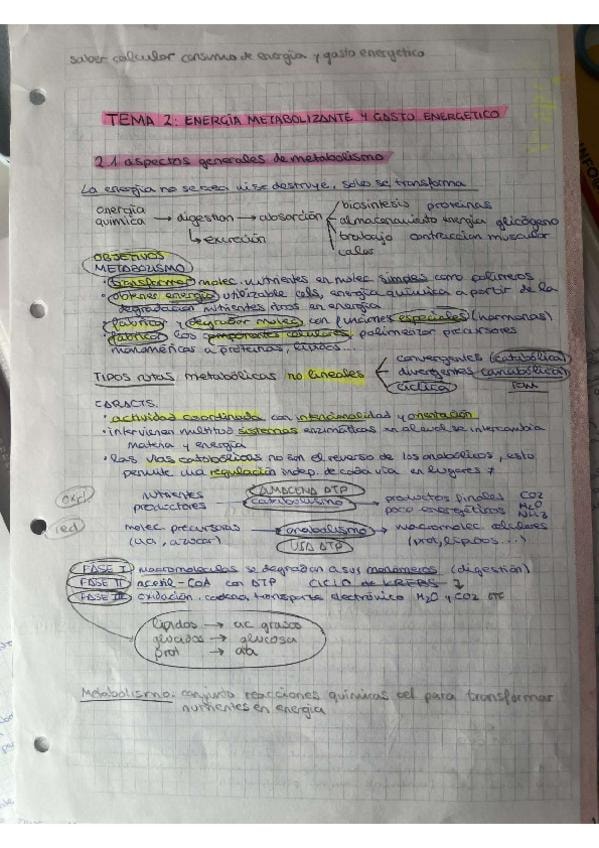 saber calcular consumo de energía y gasto energético
TEMA 2: ENERGÍA METABOLIZANTE Y GASTO ENERGETICO
2.1 aspectos generales de metabolismo
La energía no se crea ni se destruye, solo se transforma
energía química → digestion → absorción
biosintesis proteinas
almacenamiento energia glicógeno
trabajo contraccion muscular
calor
↳ excreción
OBJETIVOS
METABOLISMO
· transformar molec. nutrientes en molec simples como polimeros
· obtener energía utilizable cels, energía química a partir de la
degradación nutrientes ricos en energía
· fabricar y degradar molec con funciones especiales (hormonas)
· fabricar los componentes celulares, polimerizar precursores
monoméricas a proteinas, lípidos...
TIPOS rutas metabólicas no lineales
convergentes (catabólica)
divergentes (anabólica)
cíclica
CARACTS.
· actividad coordinada con intencionalidad y orientación
· intervienen multitud sistemas enzimáticos en el cual se intercambia
materia y energía
· las vías catabólicas no son el reverso de las anabólicas, esto
permite una regulación indep. de cada vía en lugares ≠
oxd
nutrientes productores
ALMACENA ATP
catabolismo → productos finales poco energéticos
CO2
H2O
NH3
red
molec precursoras (aa, azucar)
anabolismo → macromolec celulares (prot, lípidos...)
USA ATP
FASE I macromoleculas se degradan a sus monómeros (digestión)
FASE II acetil-CoA con ATP CICLO de KREBS
FASE III oxidación. cadena transporte electrónico H2O y CO2 ETC
lípidos → ac grasos
glucidos → glucosa
prot → aa
Metabolismo: conjunto reacciones quimicas cel para transformar
nutrientes en energia